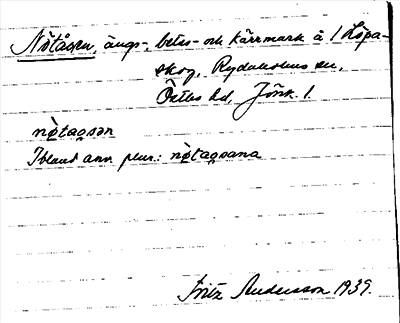 Nötåsen, ängs-, betes- och kärrmark å 1 Löpa-
skog, Rydaholms sn,
Östbo hd, Jönk. l.
nøtagsən
Ibland änv plur.: nøtagsana
Fritz Andersson 1939.